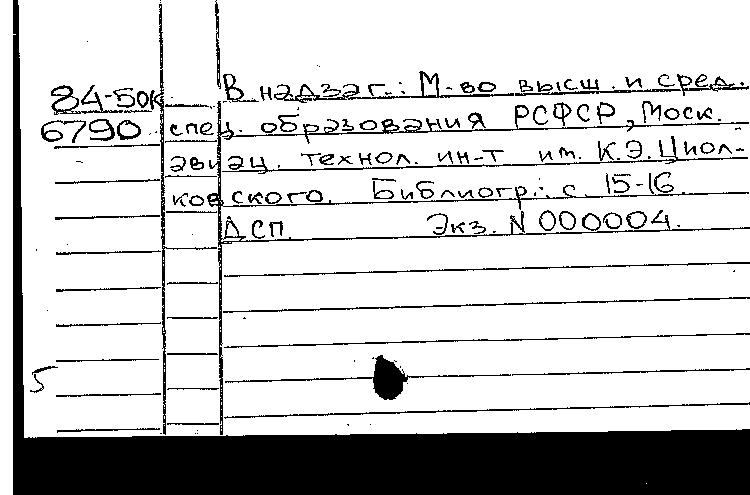 84-5ок В надзаг.: М-во высш. и сред.
6790 спец. образования РСФСР, Моск.
авиац. технол. ин-т им. К.Э. Циол-
ковского. Библиогр.: с. 15-16.
ДСП. Экз. N 000004.
5